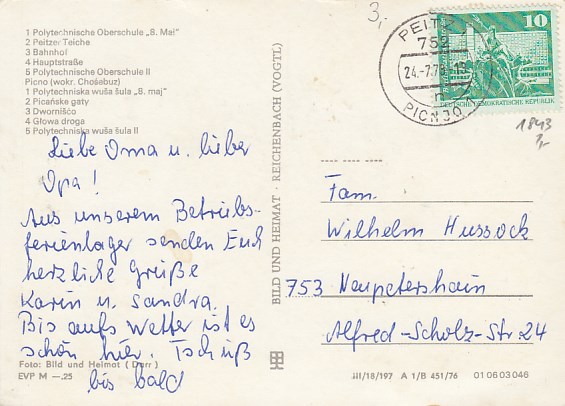 1 Polytechnische Oberschule „8. Mai"
2 Peitzer Teiche
3 Bahnhof
4 Hauptstraße
5 Polytechnische Oberschule II
Picno (wokr. Chośebuz)
1 Polytechniska wuša šula „8. maj"
2 Picańske gaty
3 Dwornišćo
4 Głowa droga
5 Polytechniska wuša šula II
Liebe Oma u. lieber
Opa!
Aus unserem Betriebs-
ferienlager senden Euch
herzliche Grüße
Karin u. Sandra.
Bis aufs Wetter ist es
schön hier. Tschüß
bis bald
Foto: Bild und Heimat (Darr)
EVP M —.25
BILD UND HEIMAT · REICHENBACH (VOGTL)
3,-
PEITZ
752
24.-7.78
n
PICNJO
10
DEUTSCHE DEMOKRATISCHE REPUBLIK
1843
Fam.
Wilhelm Hussock
753 Neupetershain
Alfred-Scholz-Str 24
III/18/197 A 1/B 451/76 01 06 03 046